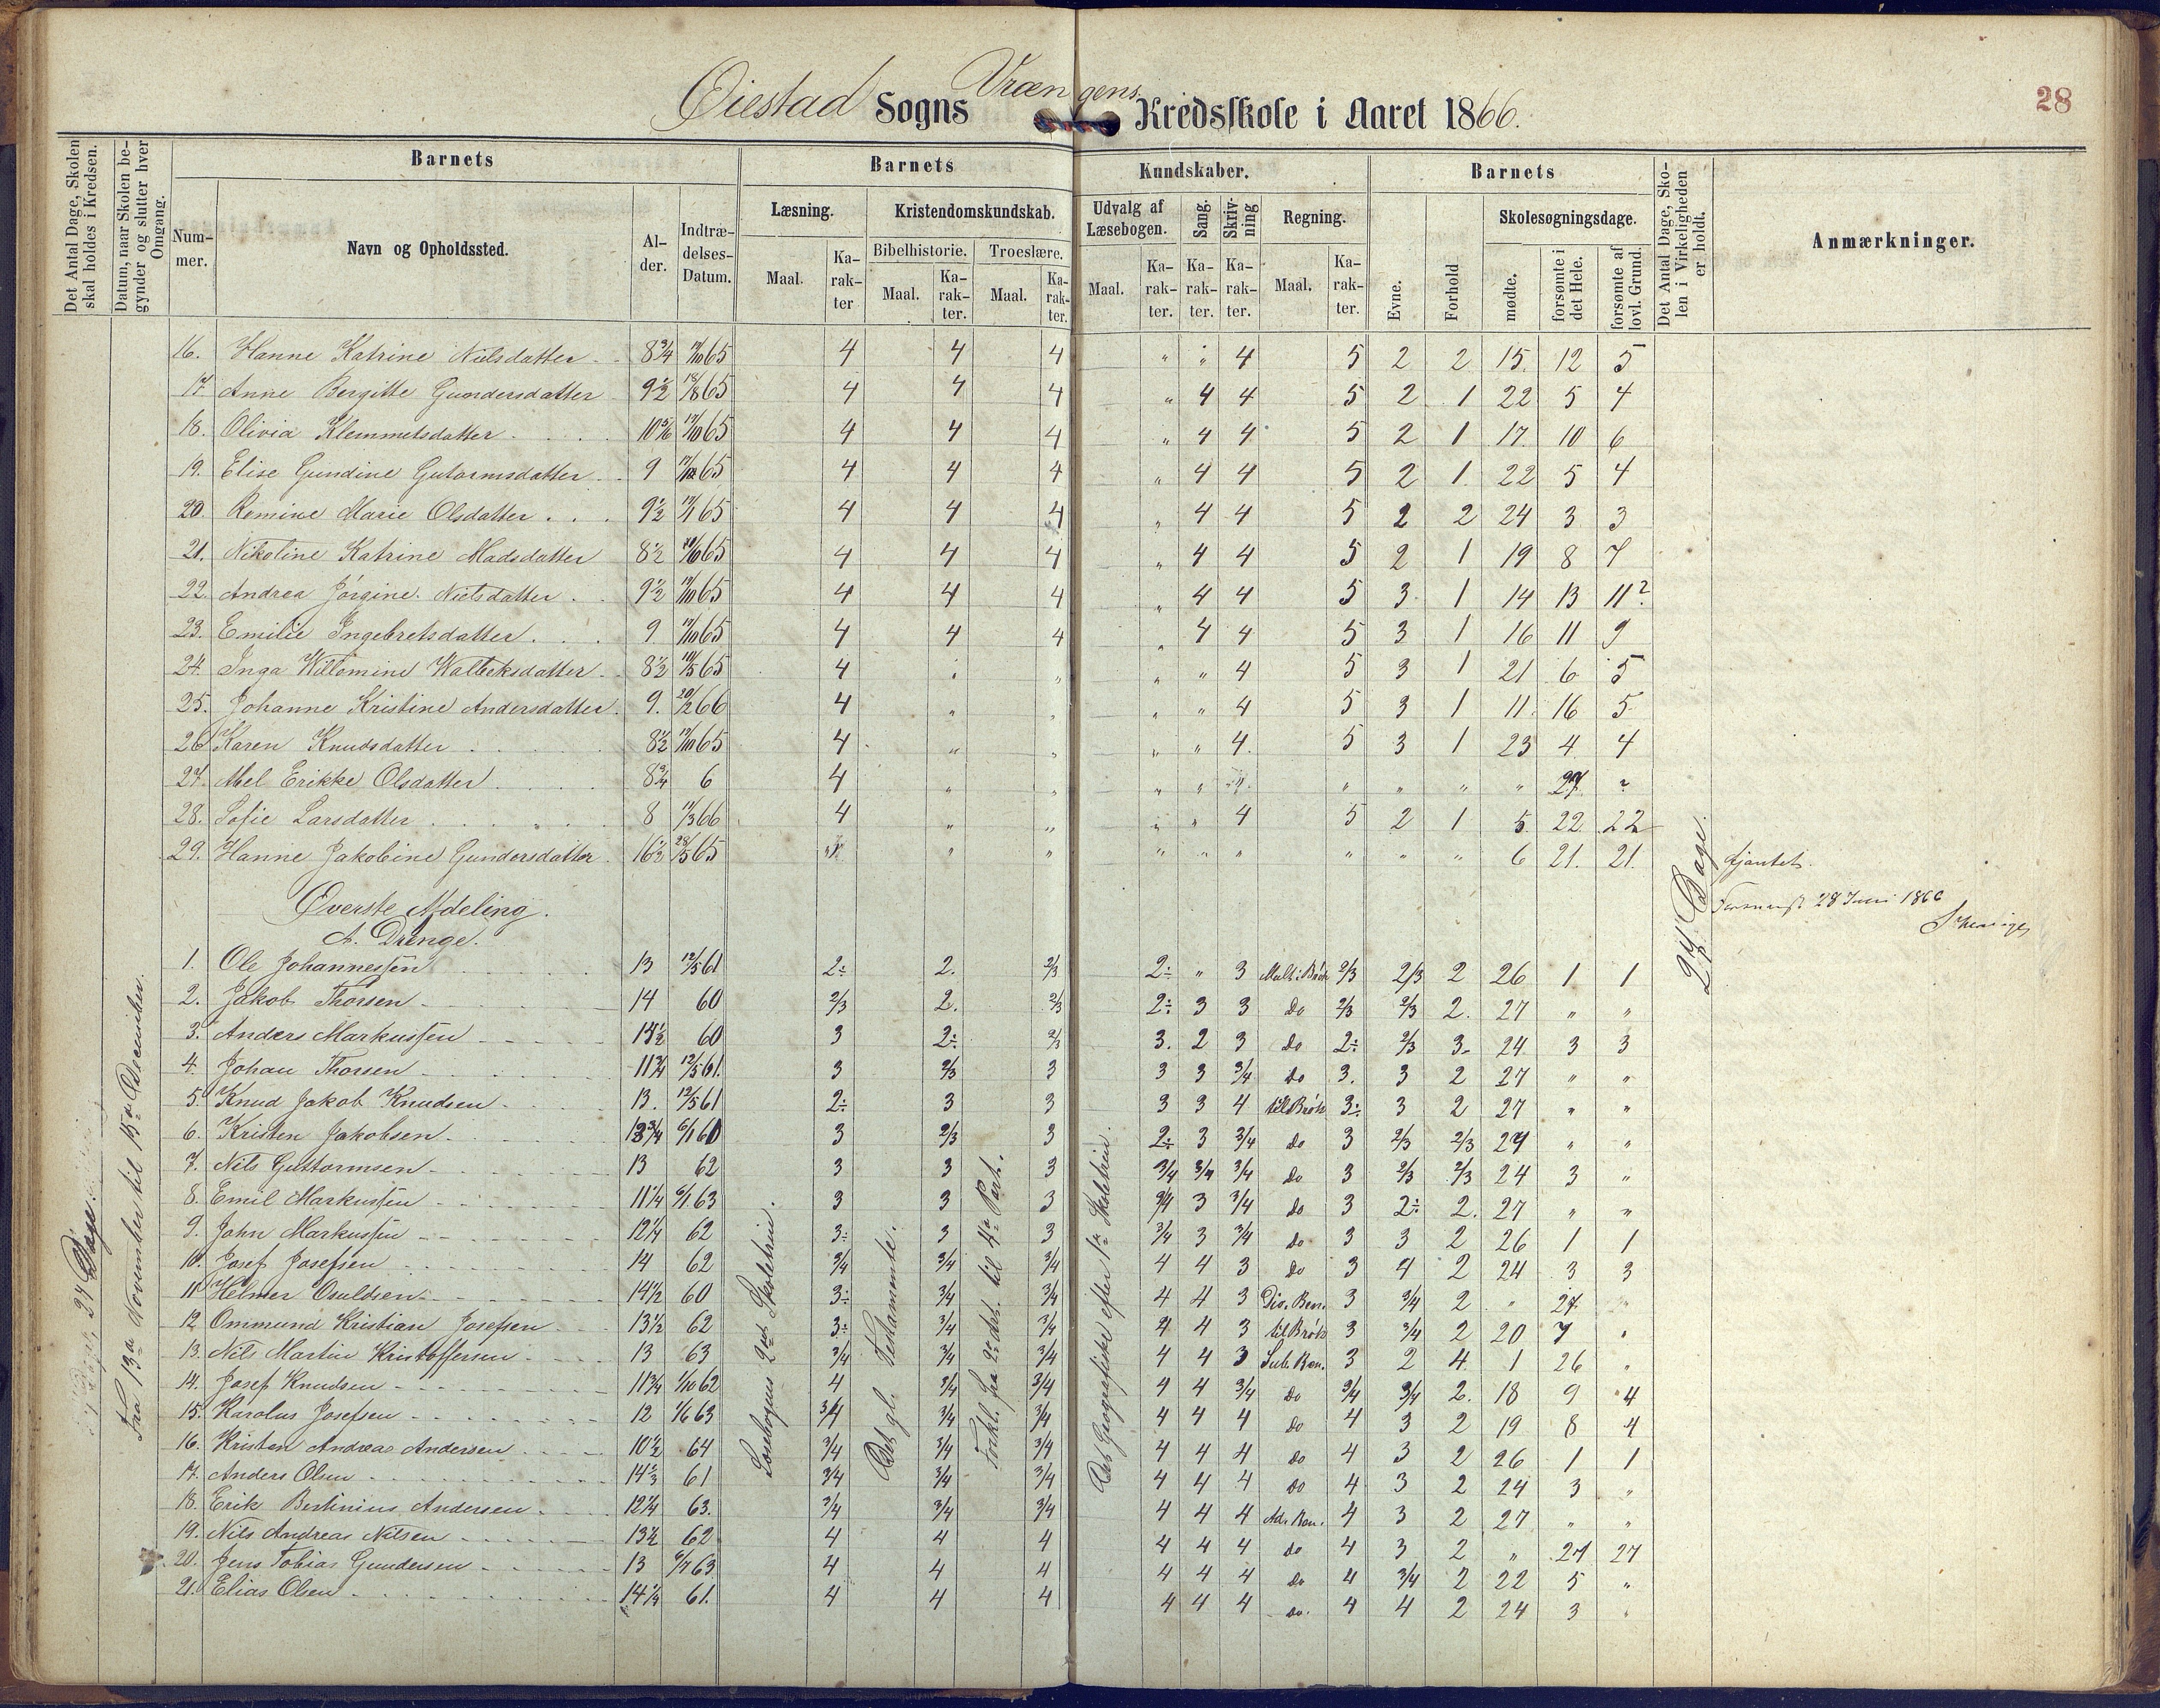 Øiestad Sogns Vrængens Kredsskole i Aaret 1866.
28
Det Antal Dage, Skolen skal holdes i Kredsen.
Datum, naar Skolen begynder og slutter hver Omgang.
Barnets
Num-mer.
Navn og Opholdssted.
Al-der.
Indtræ-delses-Datum.
Barnets Kundskaber.
Læsning.
Maal.
Ka-rak-ter
Kristendomskundskab.
Bibelhistorie.
Maal.
Ka-rak-ter.
Troeslære.
Maal.
Ka-rak-ter.
Udvalg af Læsebogen.
Maal.
Ka-rak-ter.
Sang.
Ka-rak-ter.
Skriv-ning
Ka-rak-ter.
Regning.
Maal.
Ka-rak-ter.
Barnets
Evne.
Forhold
Skolesøgningsdage.
mødte.
forsømte i det Hele.
forsømte af lovl. Grund.
Det Antal Dage, Sko-len i Virkeligheden er holdt.
Anmærkninger.
16. Hanne Katrine Nielsdatter 8 3/4 65 4 4 4 " " 4 5 2 2 15. 12 5
17. Anne Bergitte Gundersdatter 9 1/2 18/8 65 4 4 4 " 4 4 5 2 1 22 5 4
18. Olivia Klemmetsdatter 10 5/6 65 4 4 4 " 4 4 5 2 1 17. 10 6
19. Elise Gundine Gutormsdatter 9 65 4 4 4 " 4 4 5 2 1 22 5 4
20. Romine Marie Olsdatter 9 1/2 65 4 4 4 " 4 4 5 2 2 24 3 3
21. Nikoline Katrine Madsdatter 8 1/2 65 4 4 4 " 4 4 5 2 1 19 8 7
22. Andrea Jörgine Nielsdatter 9 1/2 65 4 4 4 " 4 4 5 3 1 14 13 11?
23. Emilie Ingebretsdatter 9 65 4 4 4 " 4 4 5 3 1 16 11 9
24. Inga Willomine Walbeksdatter 8 1/2 65 4 " " " " 4 5 3 1 21 6 5
25. Johanne Kristine Andersdatter 9. 20/2 66 4 " " " " 4 5 3 1 11. 16 5
26. Karen Knudsdatter 8 1/2 65 4 " " " " 4. 5 3 1 23 4 4
27. Abel Erikke Olsdatter 8 3/4 6 4 " " " " " " " " " 27. ?
28. Sofie Larsdatter 8 66 4 " " " " 4 5 2 1 5. 22 22
29. Hanne Jakobine Gundersdatter 16 1/2 28/5 65 " " " " " " " " 6 21. 21.
27 Dage.
28 Juni 1866
Øverste Afdeling.
A. Drenge.
1. Ole Johannessen 13 12/5 61 2÷ 2. 2/3 2÷ " 3 Mult. i Brøk 2/3 2/3 2 26 1 1
2. Jakob Thorsen 14 60 2/3 2. 2/3 2÷ 3 3 Do 2/3 2/3 2. 27 " "
3. Anders Markussen 60 3 2÷ 2/3 3. 2 3 Do 2÷ 2/3 3. 24 3 3
4. Johan Thorsen 11 3/4 12/5 61. 3 2/3 3 3 3 3/4 Do 3. 3 2 27 " "
5. Knud Jakob Knudsen 13. 12/5 61 2÷ 3 3 3 3 4 til Brøk 3÷ 3 2 27 " "
6. Kristen Jakobsen 6/1 60 3 2/3 3 2÷ 3 3/4 Do 3 2/3 2/3 27 " "
7. Nils Guttormsen 13 62 3 3 3 3/4 3/4 3/4 Do 3 2/3 2/3 24 3 "
8. Emil Markussen 11 1/4 6/1 63 3 3 3 3/4 3 3/4 Do 3 2÷ 2. 27 " "
9. John Markussen 12 1/4 62 3÷ 3 3 3/4 3 3/4 Do 3 3 2 26 1 1
10. Josef Josefsen 14 62 3/4 3/4 3/4 4 4 3 Do 3 4 2 24 3 3
11. Helmer Osuldsen 14 1/2 60 3÷ 3/4 3/4 4 4 3 Div. Ben. 3 3/4 2 " 27. "
12. Ommund Kristian Josefsen 13 1/2 62 3÷ 3/4 3/4 4 4 3 til Brøk 3 3/4 2 20 7 "
13. Nils Martin Kristoffersen 13 63 3/4 3/4 3/4 4 4 3 Sub. Ben. 3 2 4 1 26 "
14. Josef Knudsen 11 3/4 1/10 62 4 3/4 3/4 4 4 3/4 Do 3/4 3/4 2. 18 9 4
15. Karolus Josefsen 12 1/6 63 3/4 3/4 3/4 4 4 4 Do 4 3 2 19 8 4
16. Kristen Andreas Andersen 10 1/2 64 3/4 3/4 3/4 4 4 4 Do 4 3 2 26 1 1
17. Anders Olsen 61 3/4 3/4 3/4 4 4 4 Do 4 3 2 24 3 "
18. Erik Bertinius Andersen 12 1/4 63. 3/4 3/4 3/4 4 4 4 Ad. Ben. 4 3 2 27 " "
19. Nils Andreas Nilsen 13 1/2 62 4 4 4 4 4 4 Do 4 3 2 " 27 27
20. Jens Tobias Gundersen 13 63 4 4 4 4 4 4 Do 4 3/4 2 22 5 "
21. Elias Olsen 61. 4 4 4 4 4 4 Do. 4 4 2 24 3 "
27 Dage.
Fra 13de November til 15de December.
Læsebogens 2det Skoletrin.
Det gl. Testamente.
Forkl. fra 2den Art. til 4de Part.
Det Geografiske efter 1ste Skoletrin.